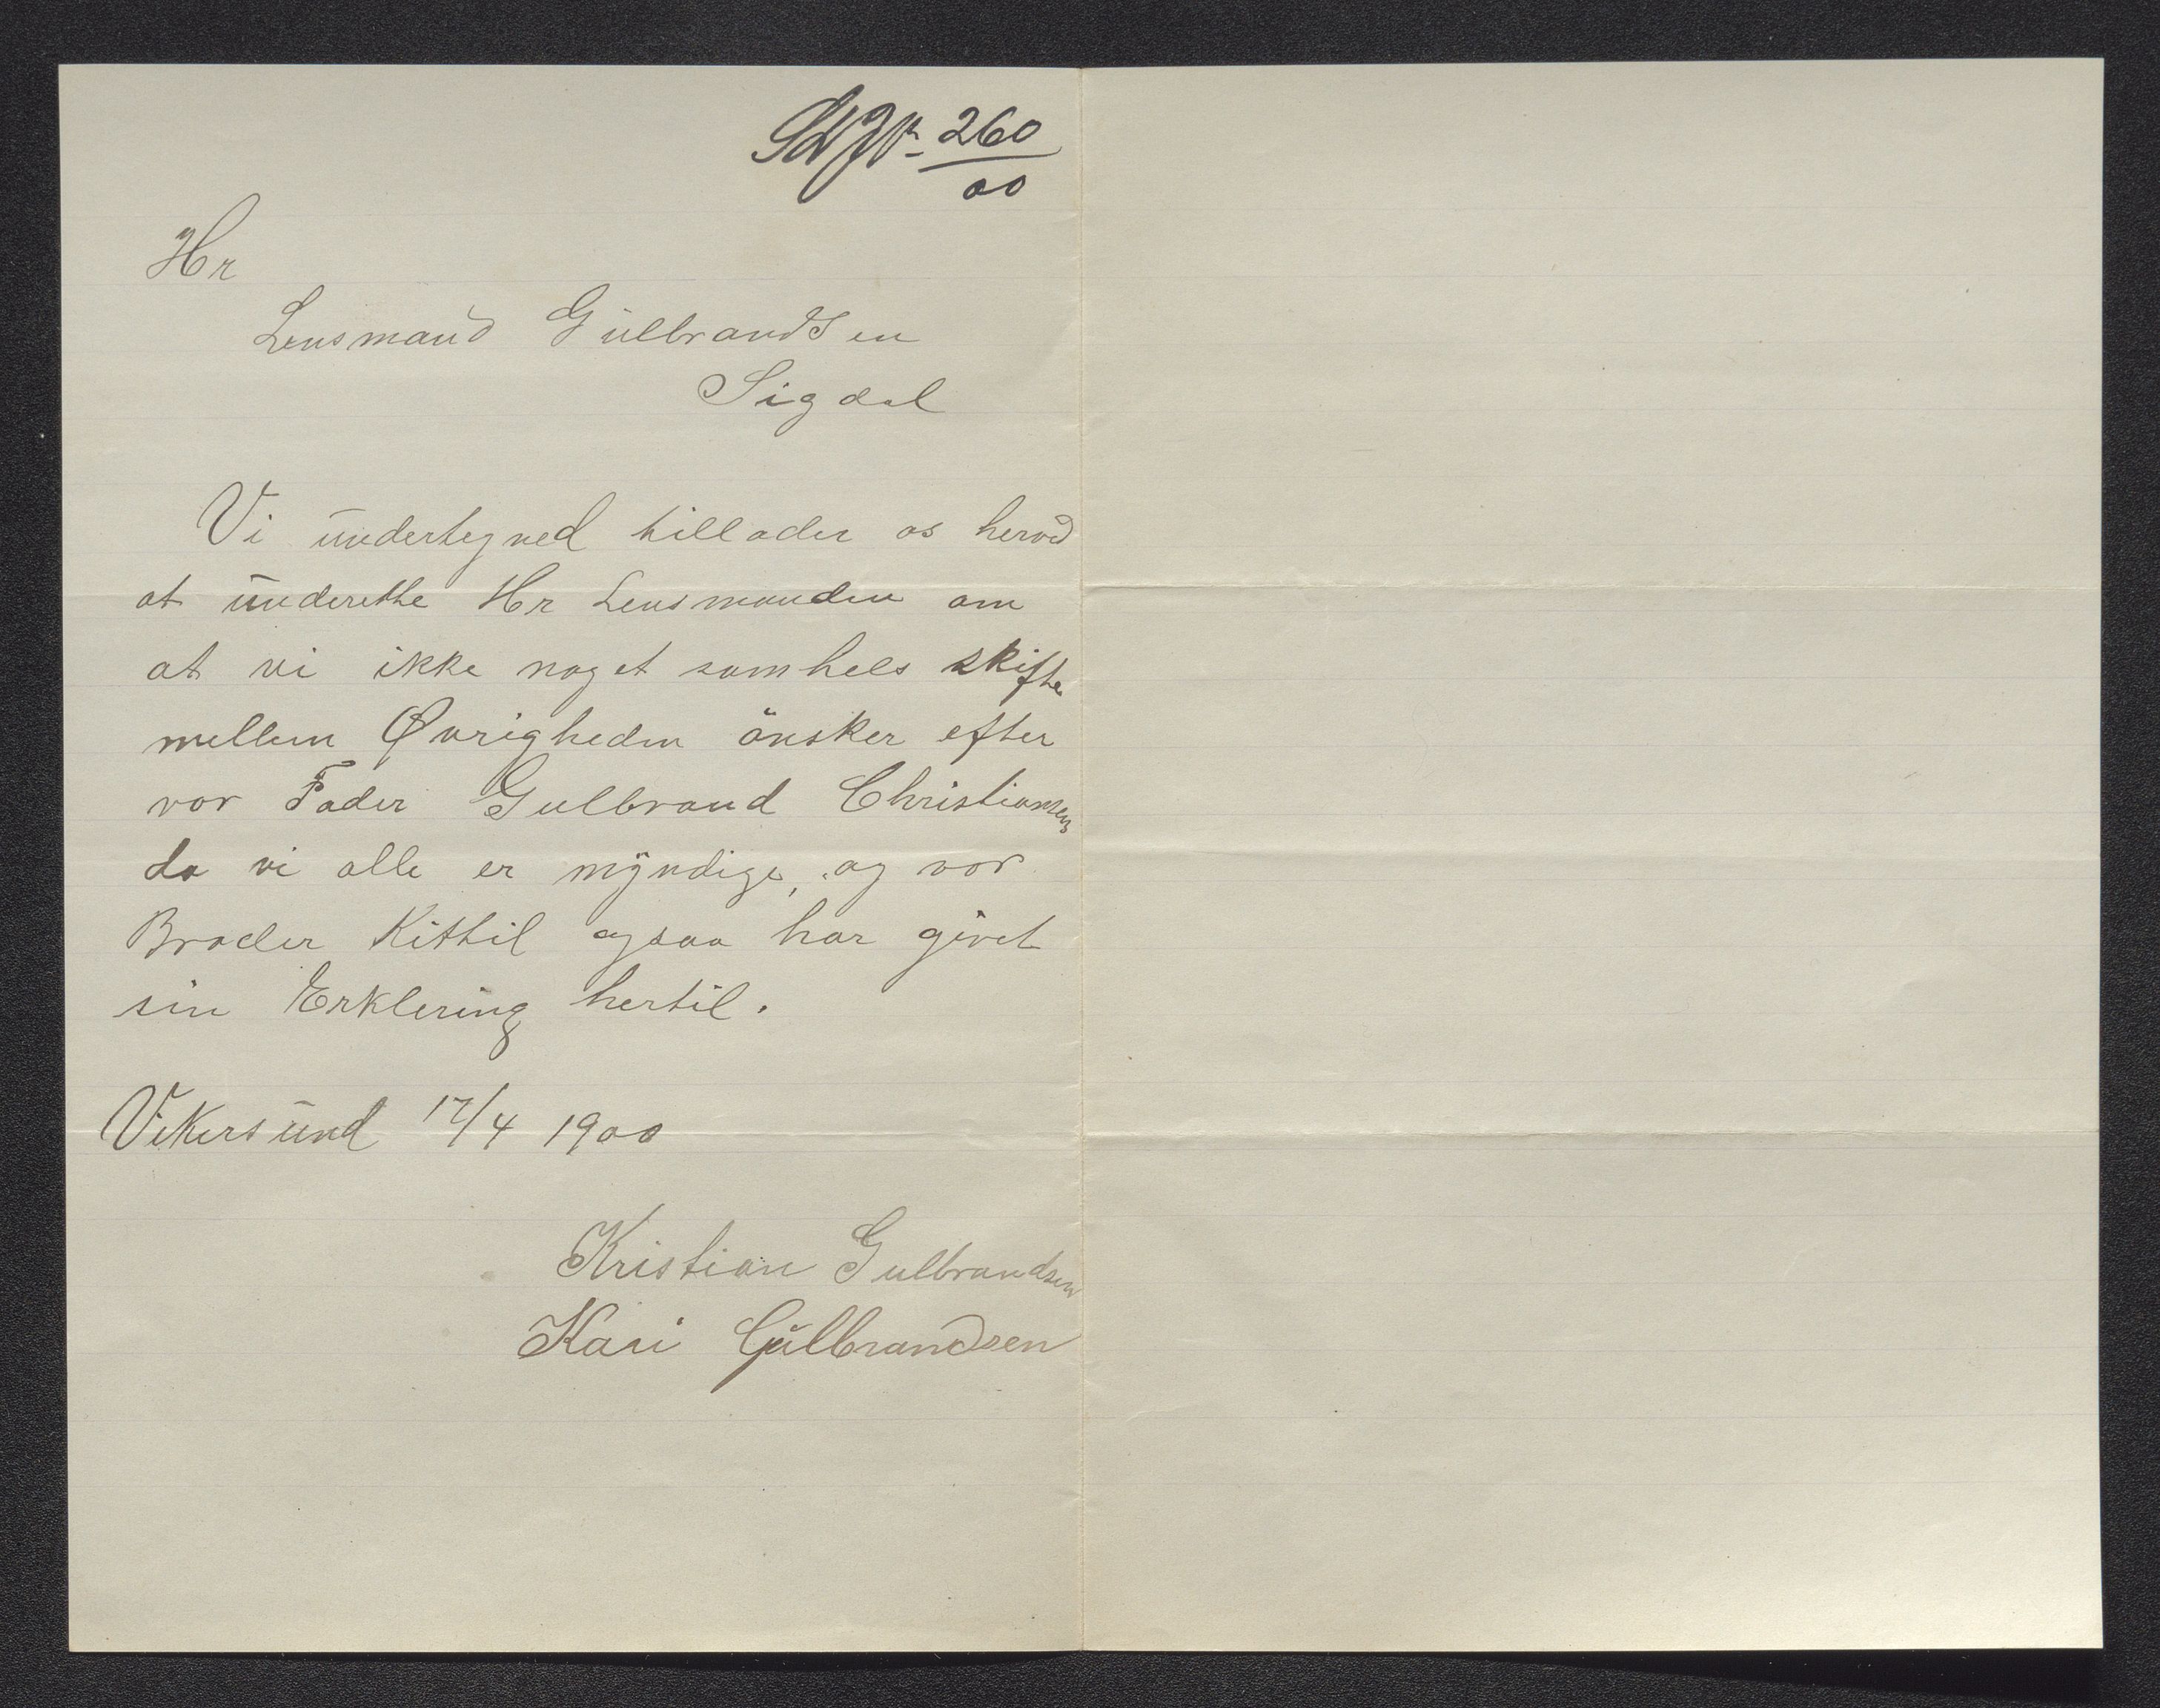 260
00
Hr
Lensmand Gulbrandsen
Sigdal
Vi undertegned tillader os herved
at underette Hr Lensmanden om
at vi ikke noget somhels skifte
mellem Øvrigheden önsker efter
vor Fader Gulbrand Christiansen
da vi alle er myndige, og vor
Broder Kittil ogsaa har givet
sin Erklering hertil.
Vikersund 17/4 1900
Kristian Gulbrandsen
Kari Gulbrandsen